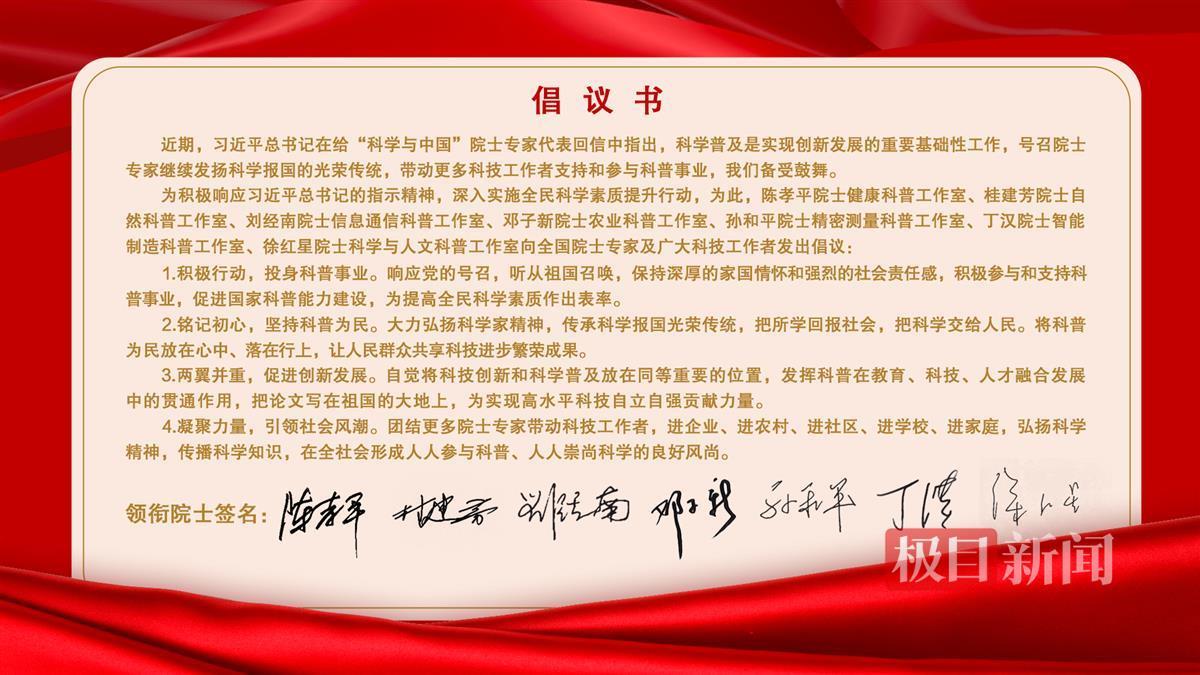 倡议书
近期，习近平总书记在给“科学与中国”院士专家代表回信中指出，科学普及是实现创新发展的重要基础性工作，号召院士
专家继续发扬科学报国的光荣传统，带动更多科技工作者支持和参与科普事业，我们备受鼓舞。
为积极响应习近平总书记的指示精神，深入实施全民科学素质提升行动，为此，陈孝平院士健康科普工作室、桂建芳院士自
然科普工作室、刘经南院士信息通信科普工作室、邓子新院士农业科普工作室、孙和平院士精密测量科普工作室、丁汉院士智能
制造科普工作室、徐红星院士科学与人文科普工作室向全国院士专家及广大科技工作者发出倡议：
1.积极行动，投身科普事业。响应党的号召，听从祖国召唤，保持深厚的家国情怀和强烈的社会责任感，积极参与和支持科
普事业，促进国家科普能力建设，为提高全民科学素质作出表率。
2.铭记初心，坚持科普为民。大力弘扬科学家精神，传承科学报国光荣传统，把所学回报社会，把科学交给人民。将科普
为民放在心中、落在行上，让人民群众共享科技进步繁荣成果。
3.两翼并重，促进创新发展。自觉将科技创新和科学普及放在同等重要的位置，发挥科普在教育、科技、人才融合发展
中的贯通作用，把论文写在祖国的大地上，为实现高水平科技自立自强贡献力量。
4.凝聚力量，引领社会风潮。团结更多院士专家带动科技工作者，进企业、进农村、进社区、进学校、进家庭，弘扬科学
精神，传播科学知识，在全社会形成人人参与科普、人人崇尚科学的良好风尚。
领衔院士签名：陈孝平 桂建芳 刘经南 邓子新 孙和平 丁汉 徐红星
极目新闻